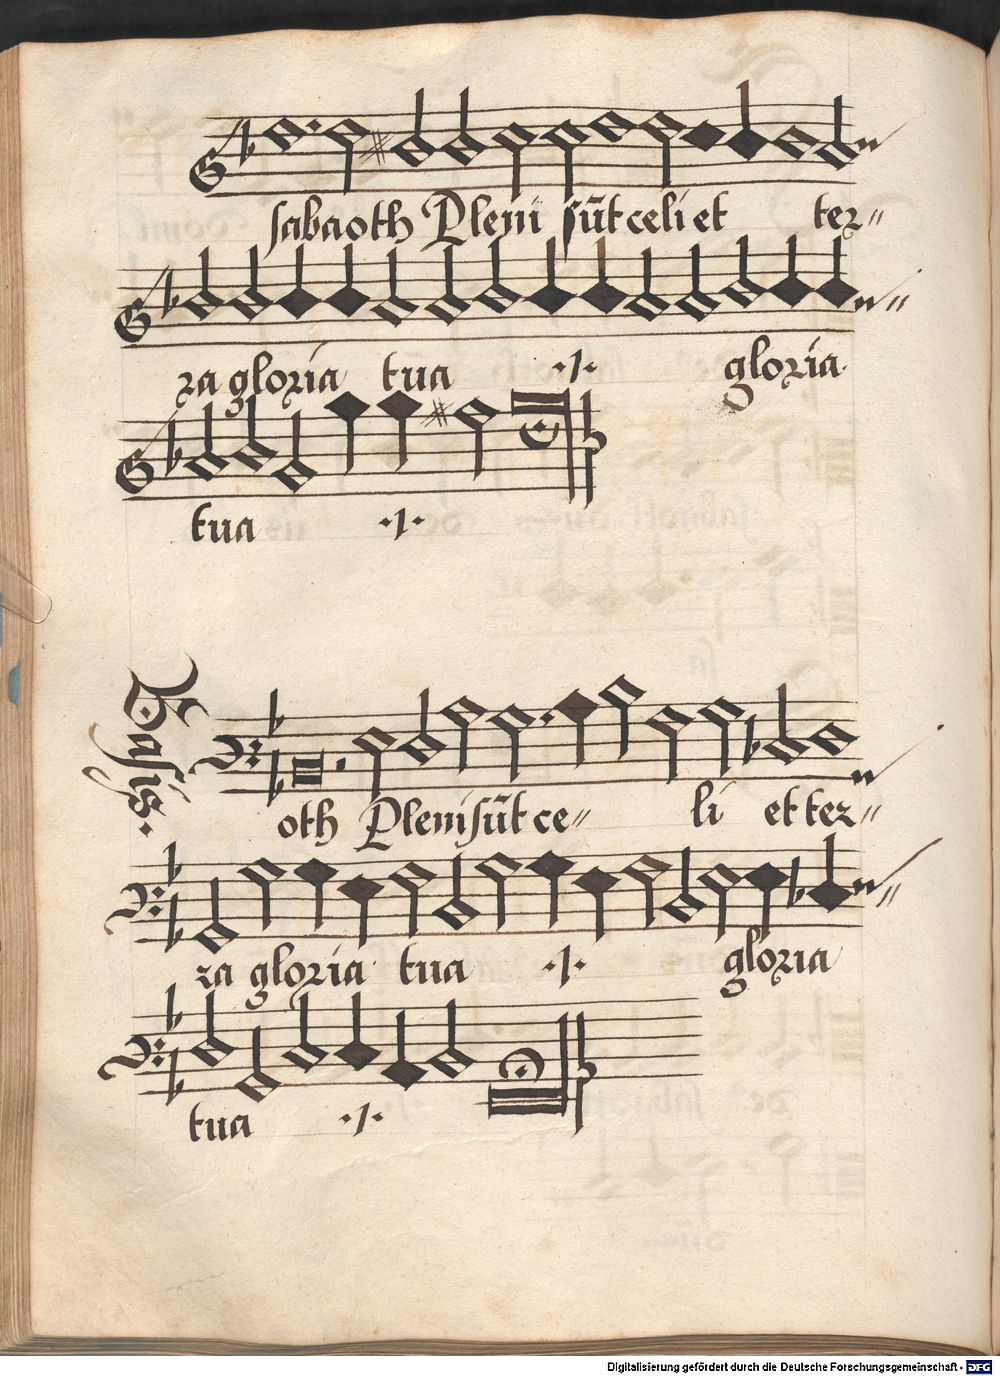 sabaoth Pleni sūt celi et ter-
ra gloria tua ·1· gloria
tua ·1·
Basis.
oth Pleni sūt ce- li et ter-
ra gloria tua ·1· gloria
tua ·1·
Digitalisierung gefördert durch die Deutsche Forschungsgemeinschaft - DFG